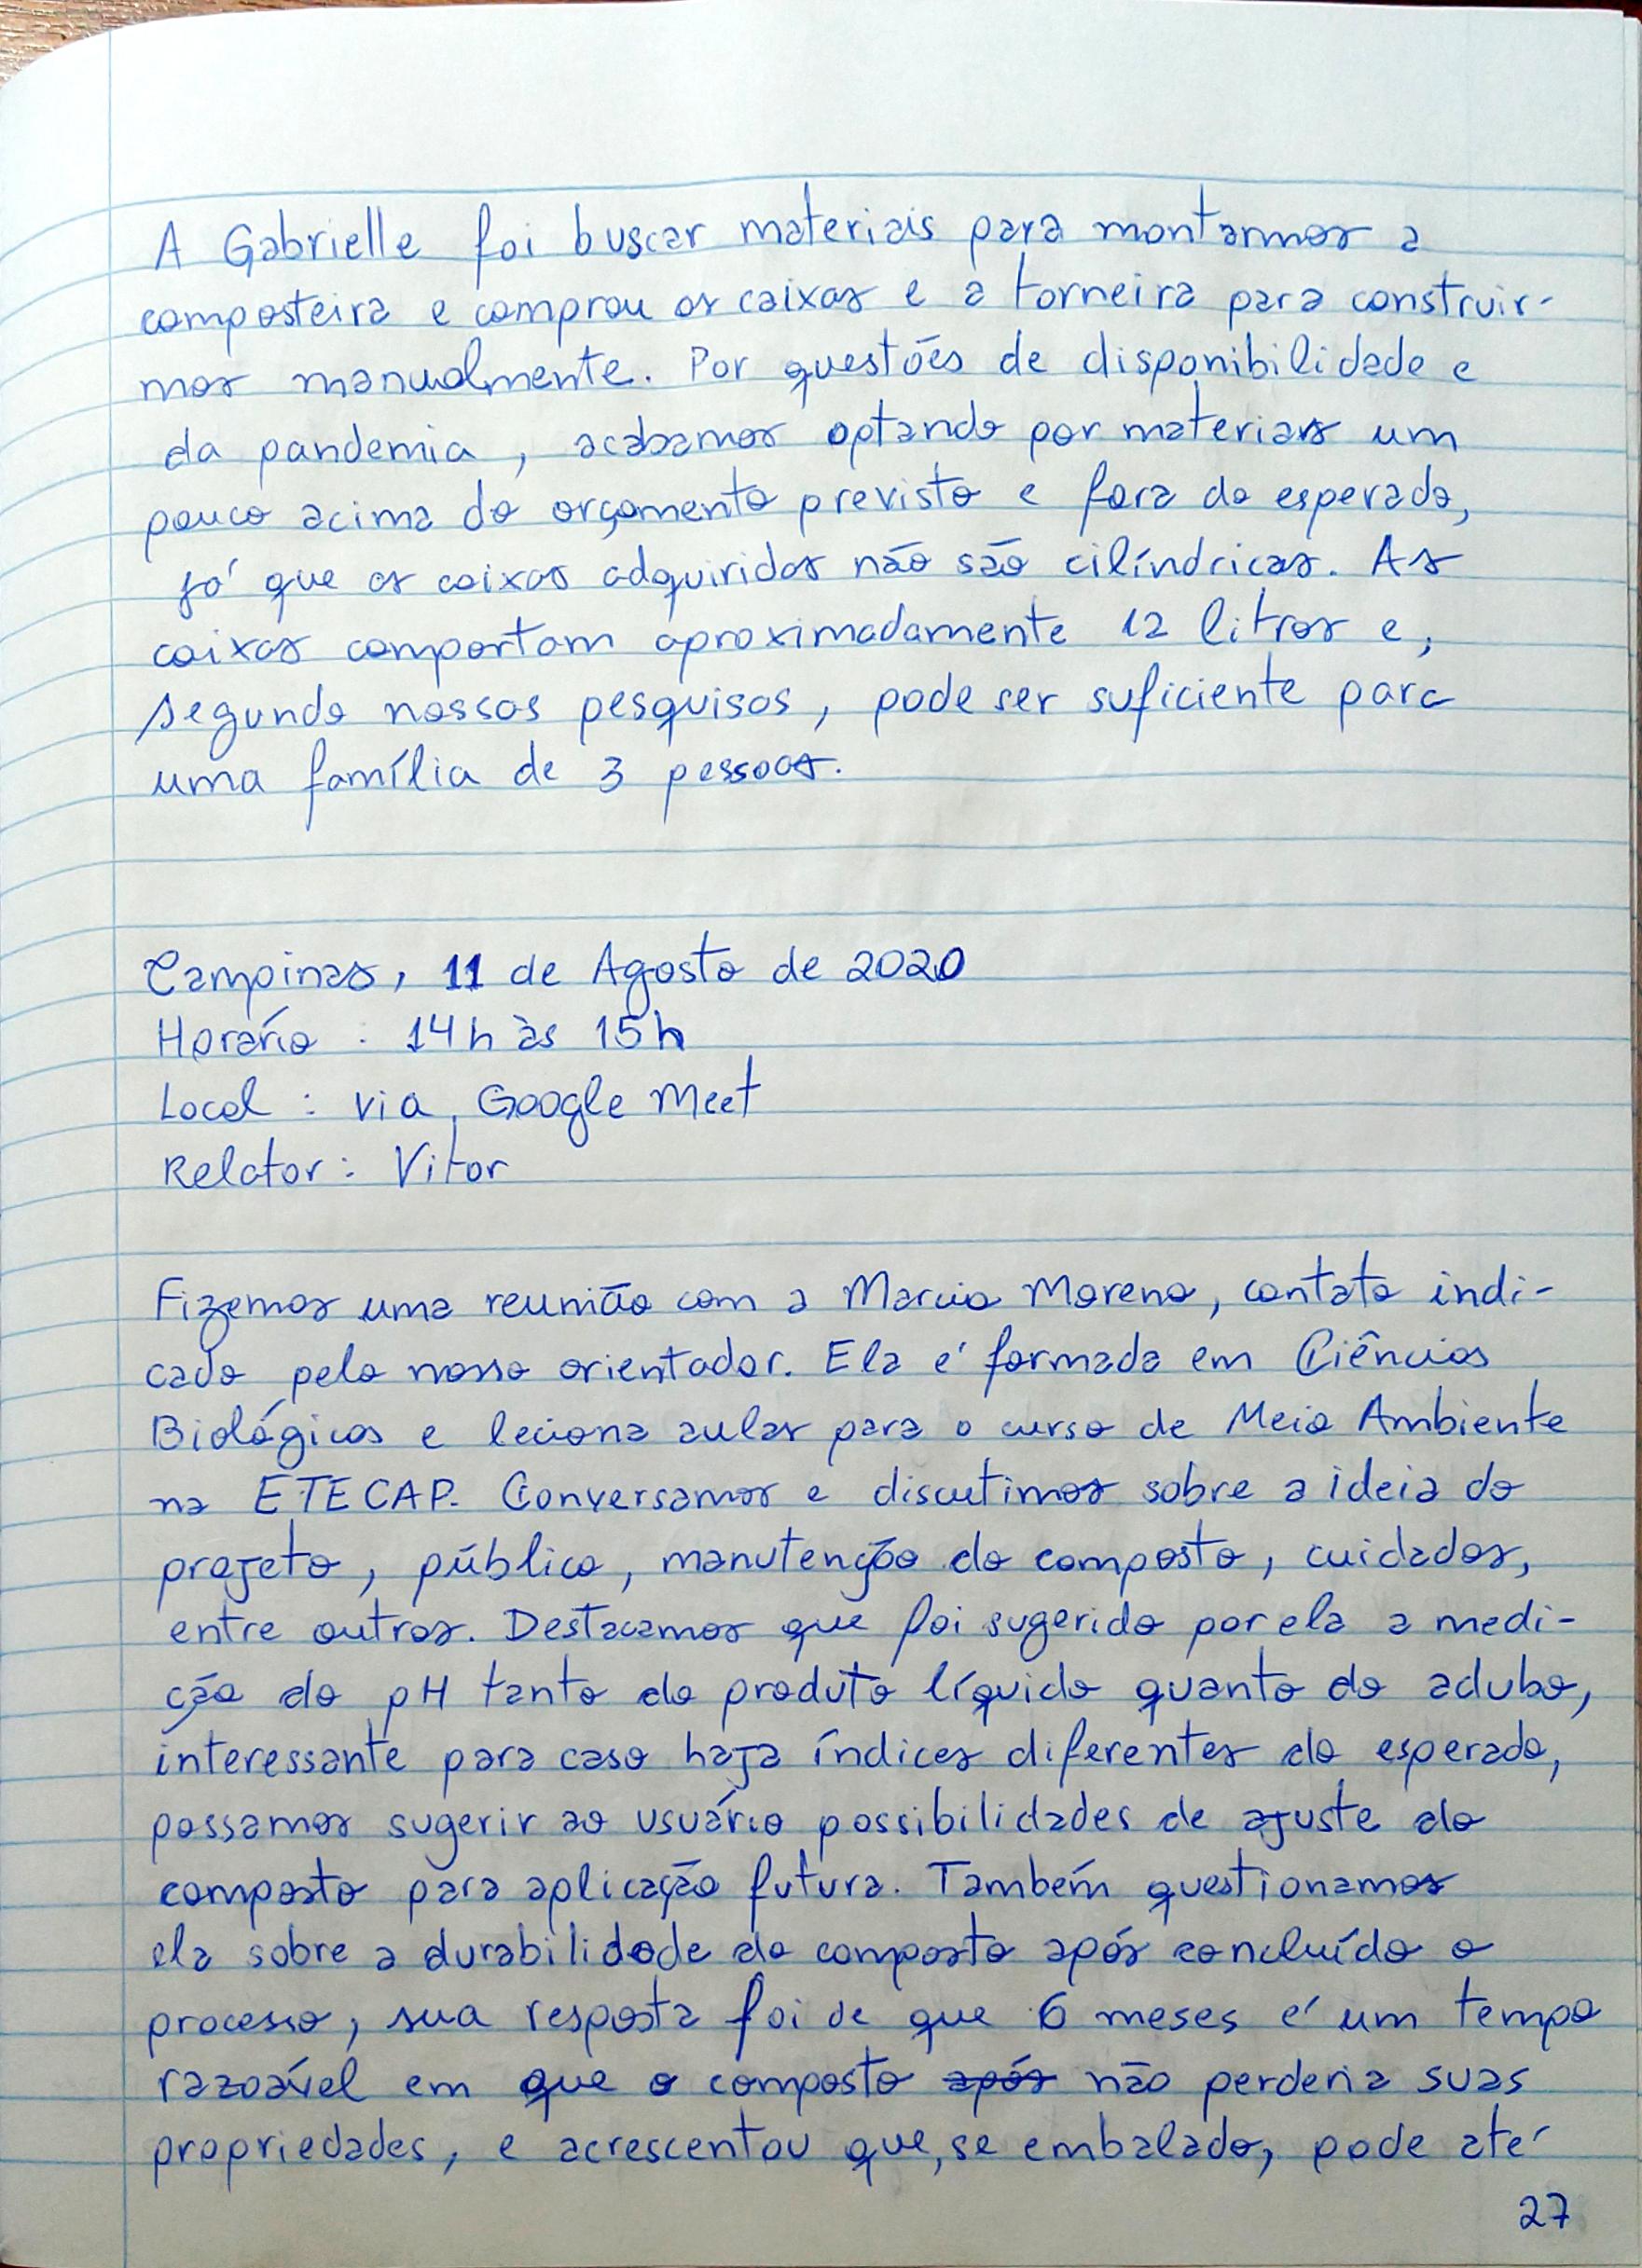 A Gabrielle foi buscar materiais para montarmos a
composteira e comprou as caixas e a torneira para construir-
mos manualmente. Por questões de disponibilidade e
da pandemia, acabamos optando por materiais um
pouco acima do orçamento previsto e fora do esperado,
já que as caixas adquiridas não são cilíndricas. As
caixas comportam aproximadamente 12 litros e,
segundo nossas pesquisas, pode ser suficiente para
uma família de 3 pessoas.
Campinas, 11 de Agosto de 2020
Horário: 14h às 15h
Local: via Google Meet
Relator: Vitor
Fizemos uma reunião com a Marcia Moreno, contato indi-
cado pelo nosso orientador. Ela é formada em Ciências
Biológicas e leciona aulas para o curso de Meio Ambiente
na ETECAP. Conversamos e discutimos sobre a ideia do
projeto, público, manutenção do composto, cuidados,
entre outros. Destacamos que foi sugerido por ela a medi-
ção do pH tanto do produto líquido quanto do adubo,
interessante para caso haja índices diferentes do esperado,
possamos sugerir ao usuário possibilidades de ajuste do
composto para aplicação futura. Também questionamos
ela sobre a durabilidade do composto após concluído o
processo, sua resposta foi de que 6 meses é um tempo
razoável em que o composto após não perderia suas
propriedades, e acrescentou que, se embalado, pode até
27